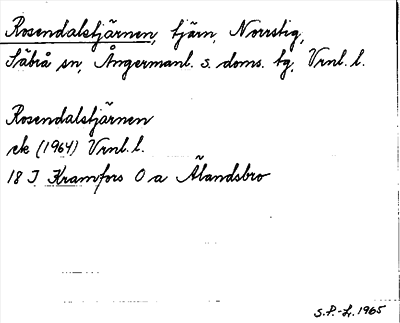 Rosendalstjärnen, tjärn, Norrstig,
Säbrå sn, Ångermanl. s. doms. tg, Vrnl. l.
Rosendalstjärnen
ek (1964) Vrnl. l.
18 I Kramfors 0 a Älandsbro
S.P.-L. 1965